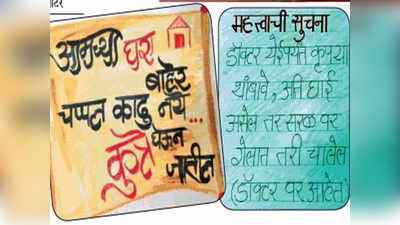 आमच्या घरा
बाहेर
चप्पल काढु नये...
कुत्रे घेऊन
जातील
महत्त्वाची सुचना
डॉक्टर येईपर्यंत कृपया
थांबावे, अति घाई
असेल तर सरळ वर
गेलात तरी चालेल
(डॉक्टर वर आहेत)